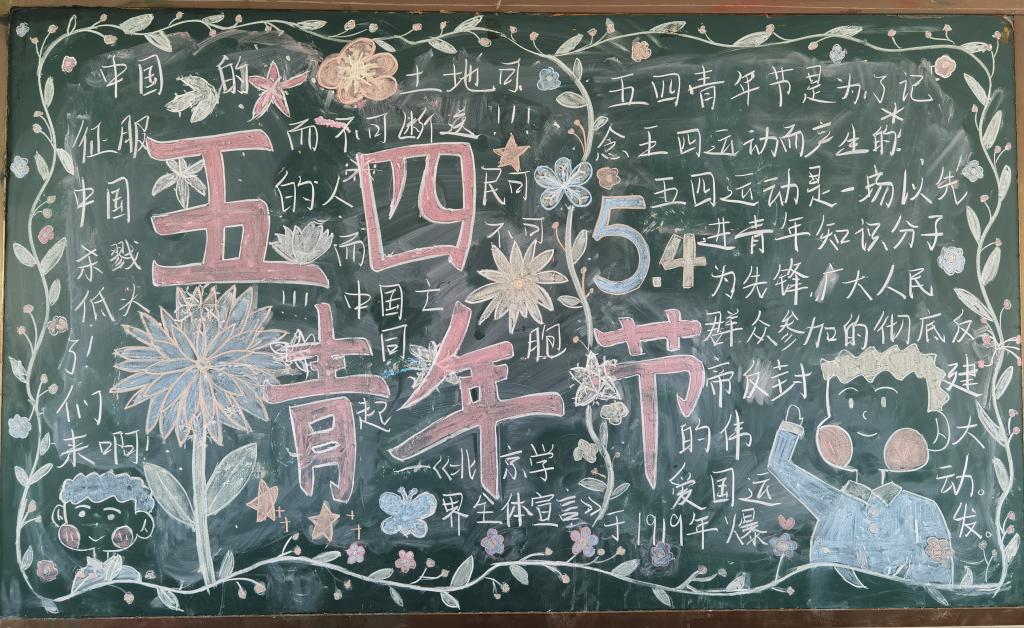 五四
青年节
中国的土地可
征服而不可断送!!!
中国的人民可
杀戮而不可
低头!!!中国亡
了!同胞
们起
来啊!
《北京学
界全体宣言》
5.4
五四青年节是为了记
念五四运动而产生的
五四运动是一场以先
进青年知识分子
为先锋,广大人民
群众参加的彻底反
帝反封建
的伟大
爱国运动。
于1919年爆发。